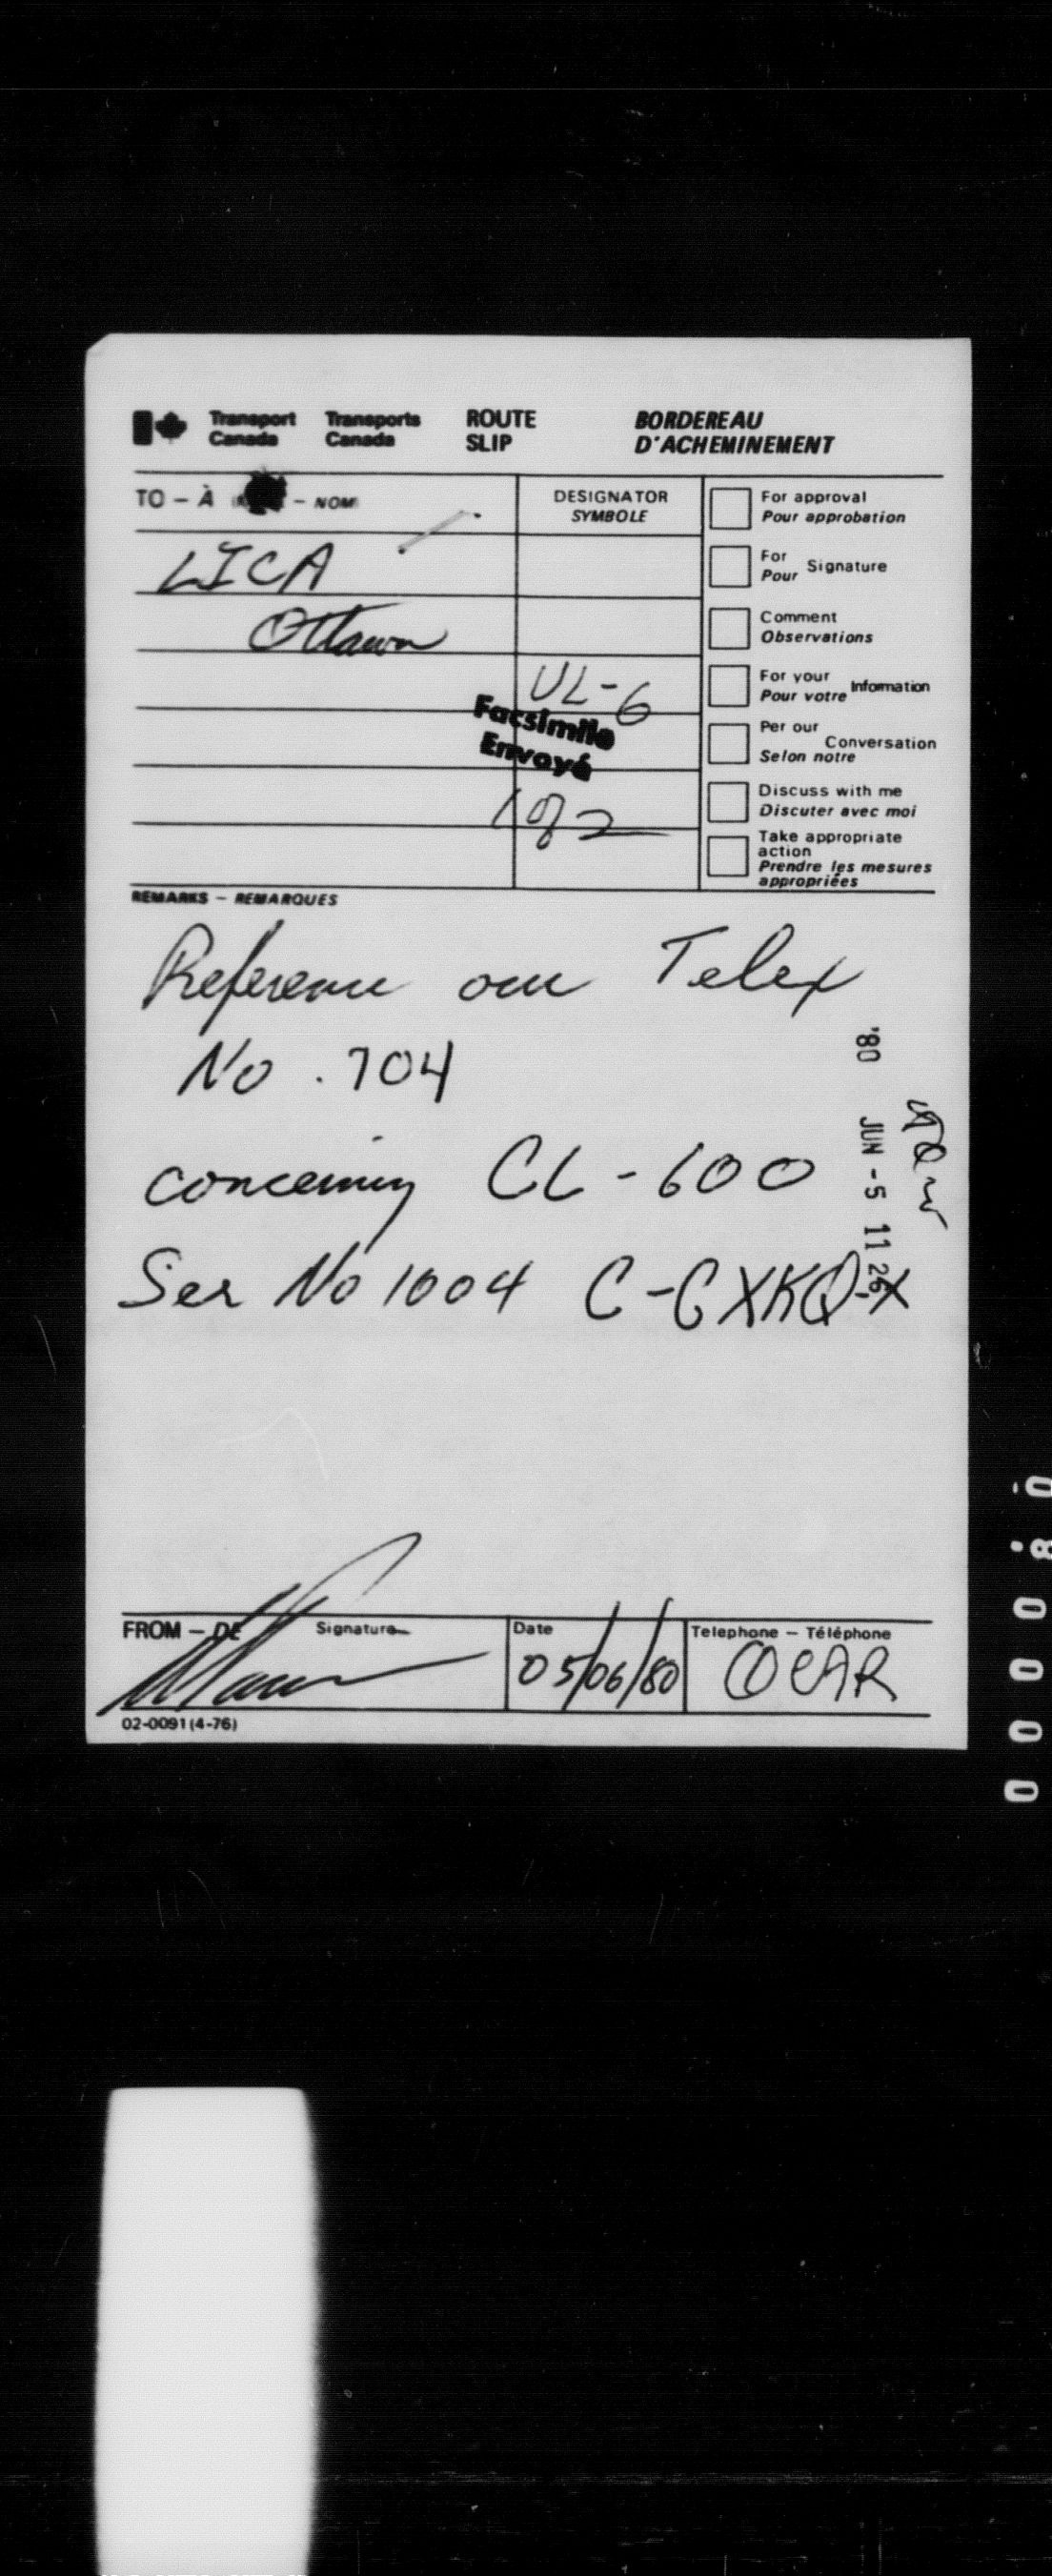 Transport Canada Transports Canada ROUTE SLIP BORDEREAU D'ACHEMINEMENT
TO – À – NOM
DESIGNATOR
SYMBOLE
LICA
Ottawa
UL-6
Facsimile
Envoyé
1 of 2
For approval
Pour approbation
For
Pour Signature
Comment
Observations
For your
Pour votre Information
Per our
Selon notre Conversation
Discuss with me
Discuter avec moi
Take appropriate
action
Prendre les mesures
appropriées
REMARKS – REMARQUES
Reference our Telex
No. 704
concerning CL-600
Ser No 1004 C-GXKQ-X
'80 JUN -5 11 26
FROM – DE Signature
Date
05/06/80
Telephone – Téléphone
02-0091 (4-76)